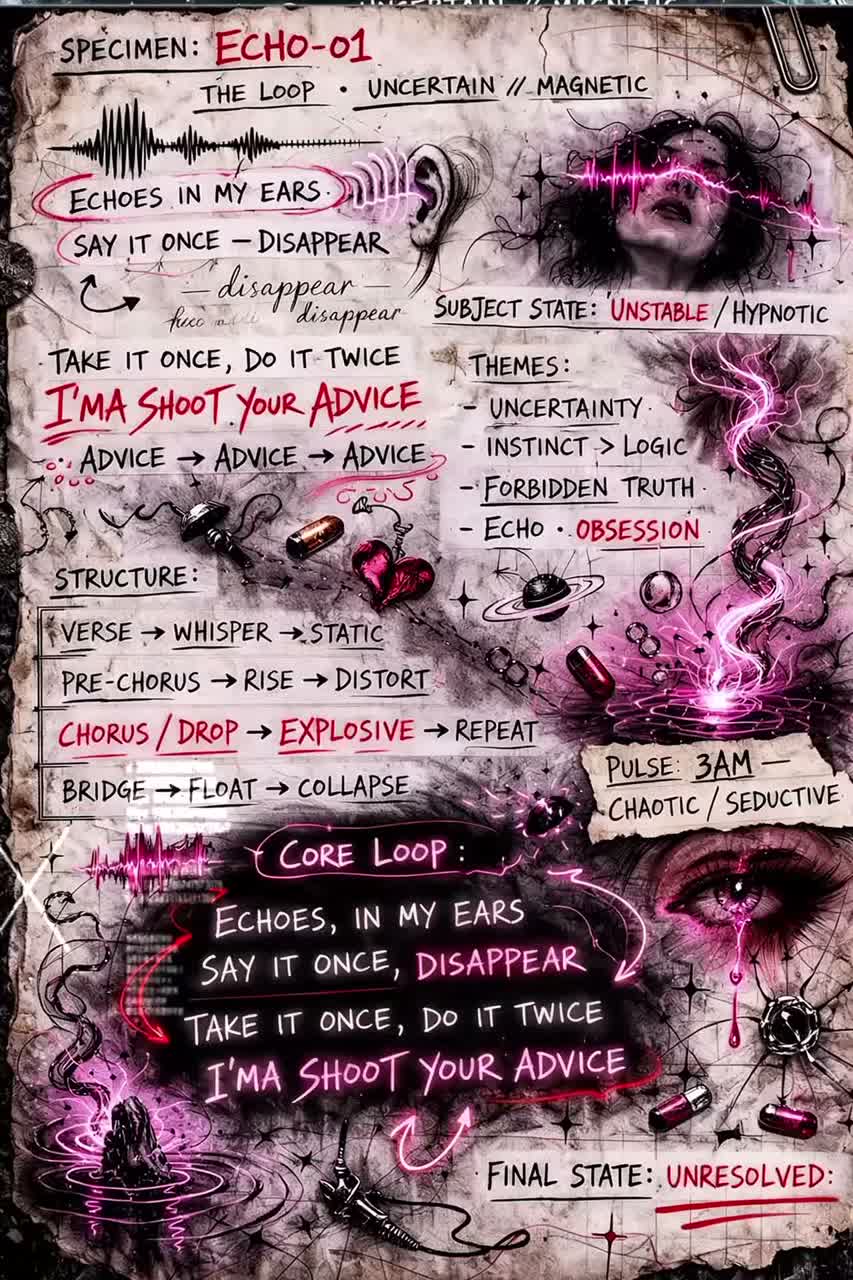 SPECIMEN: ECHO-01
THE LOOP • UNCERTAIN // MAGNETIC
ECHOES IN MY EARS.
SAY IT ONCE – DISAPPEAR
– disappear –
disappear
TAKE IT ONCE, DO IT TWICE
I'MA SHOOT YOUR ADVICE
ADVICE → ADVICE → ADVICE
SUBJECT STATE: UNSTABLE / HYPNOTIC
THEMES:
– UNCERTAINTY
– INSTINCT > LOGIC
– FORBIDDEN TRUTH
– ECHO • OBSESSION
STRUCTURE:
VERSE → WHISPER → STATIC
PRE-CHORUS → RISE → DISTORT
CHORUS / DROP → EXPLOSIVE → REPEAT
BRIDGE → FLOAT → COLLAPSE
PULSE: 3AM –
CHAOTIC / SEDUCTIVE
CORE LOOP:
ECHOES, IN MY EARS
SAY IT ONCE, DISAPPEAR
TAKE IT ONCE, DO IT TWICE
I'MA SHOOT YOUR ADVICE
FINAL STATE: UNRESOLVED: